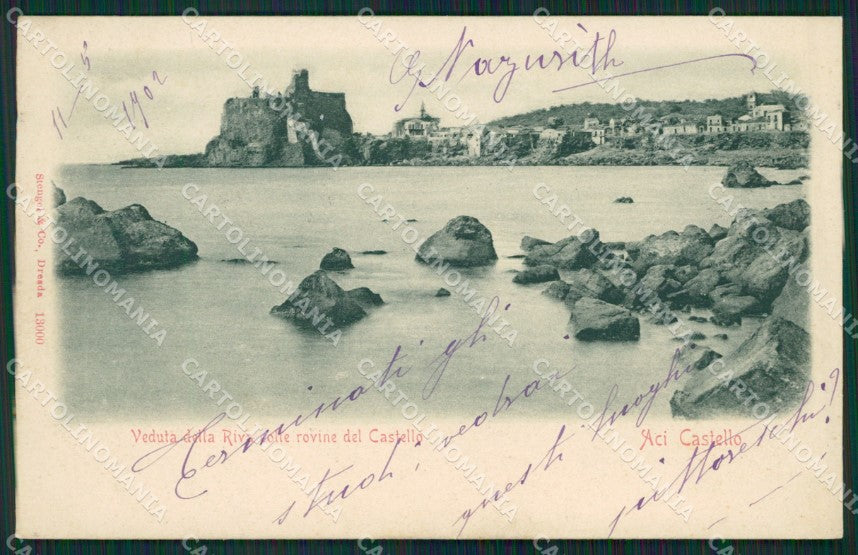 11-5
1902
Nazarith
Stengel & Co., Dresda 13000
Veduta dalla Riva colle rovine del Castello
Aci Castello
Terminati gli
studi, vedrai
questi luoghi
pittoreschi!
CARTOLINOMANIA